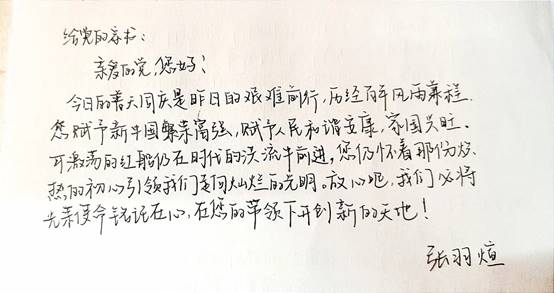 给党的家书：
亲爱的党，您好！
今日的普天同庆是昨日的艰难前行，历经百年风雨兼程，
您赋予新中国繁荣富强，赋予人民和谐安康，家国兴旺。
可激荡的红船仍在时代的洪流中前进，您仍怀着那份炽
热的初心引领我们走向灿烂的光明。放心吧，我们必将
先辈使命铭记在心，在您的带领下开创新的天地！
张羽煊